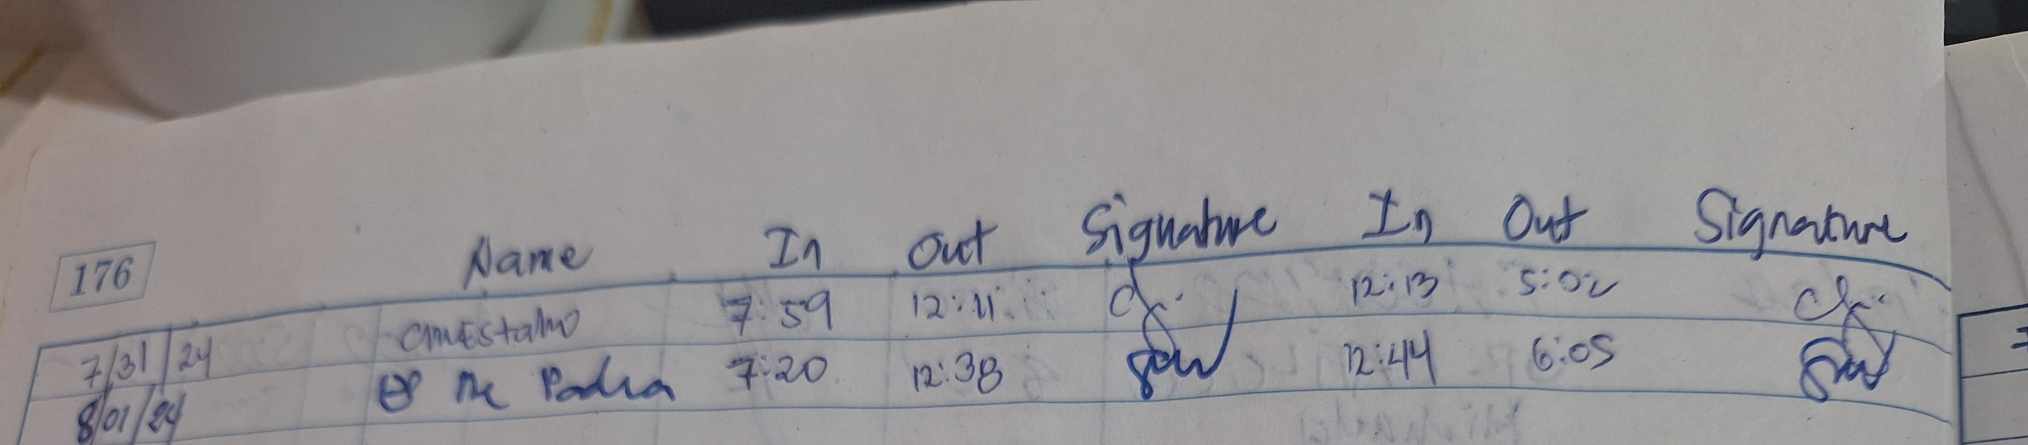 176
Name In Out Signature In Out Signature
7/31/24 7:59 12:11 12:13 5:02
8/01/24 7:20 12:38 12:44 6:05